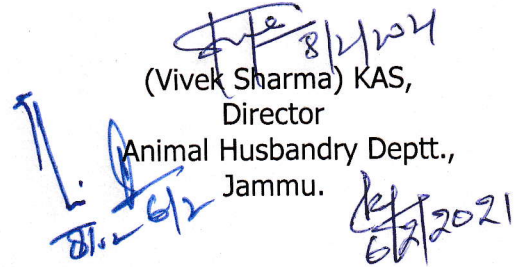 8/2/2021
(Vivek Sharma) KAS,
Director
Animal Husbandry Deptt.,
Jammu.
8/02 6/2
6/2/2021